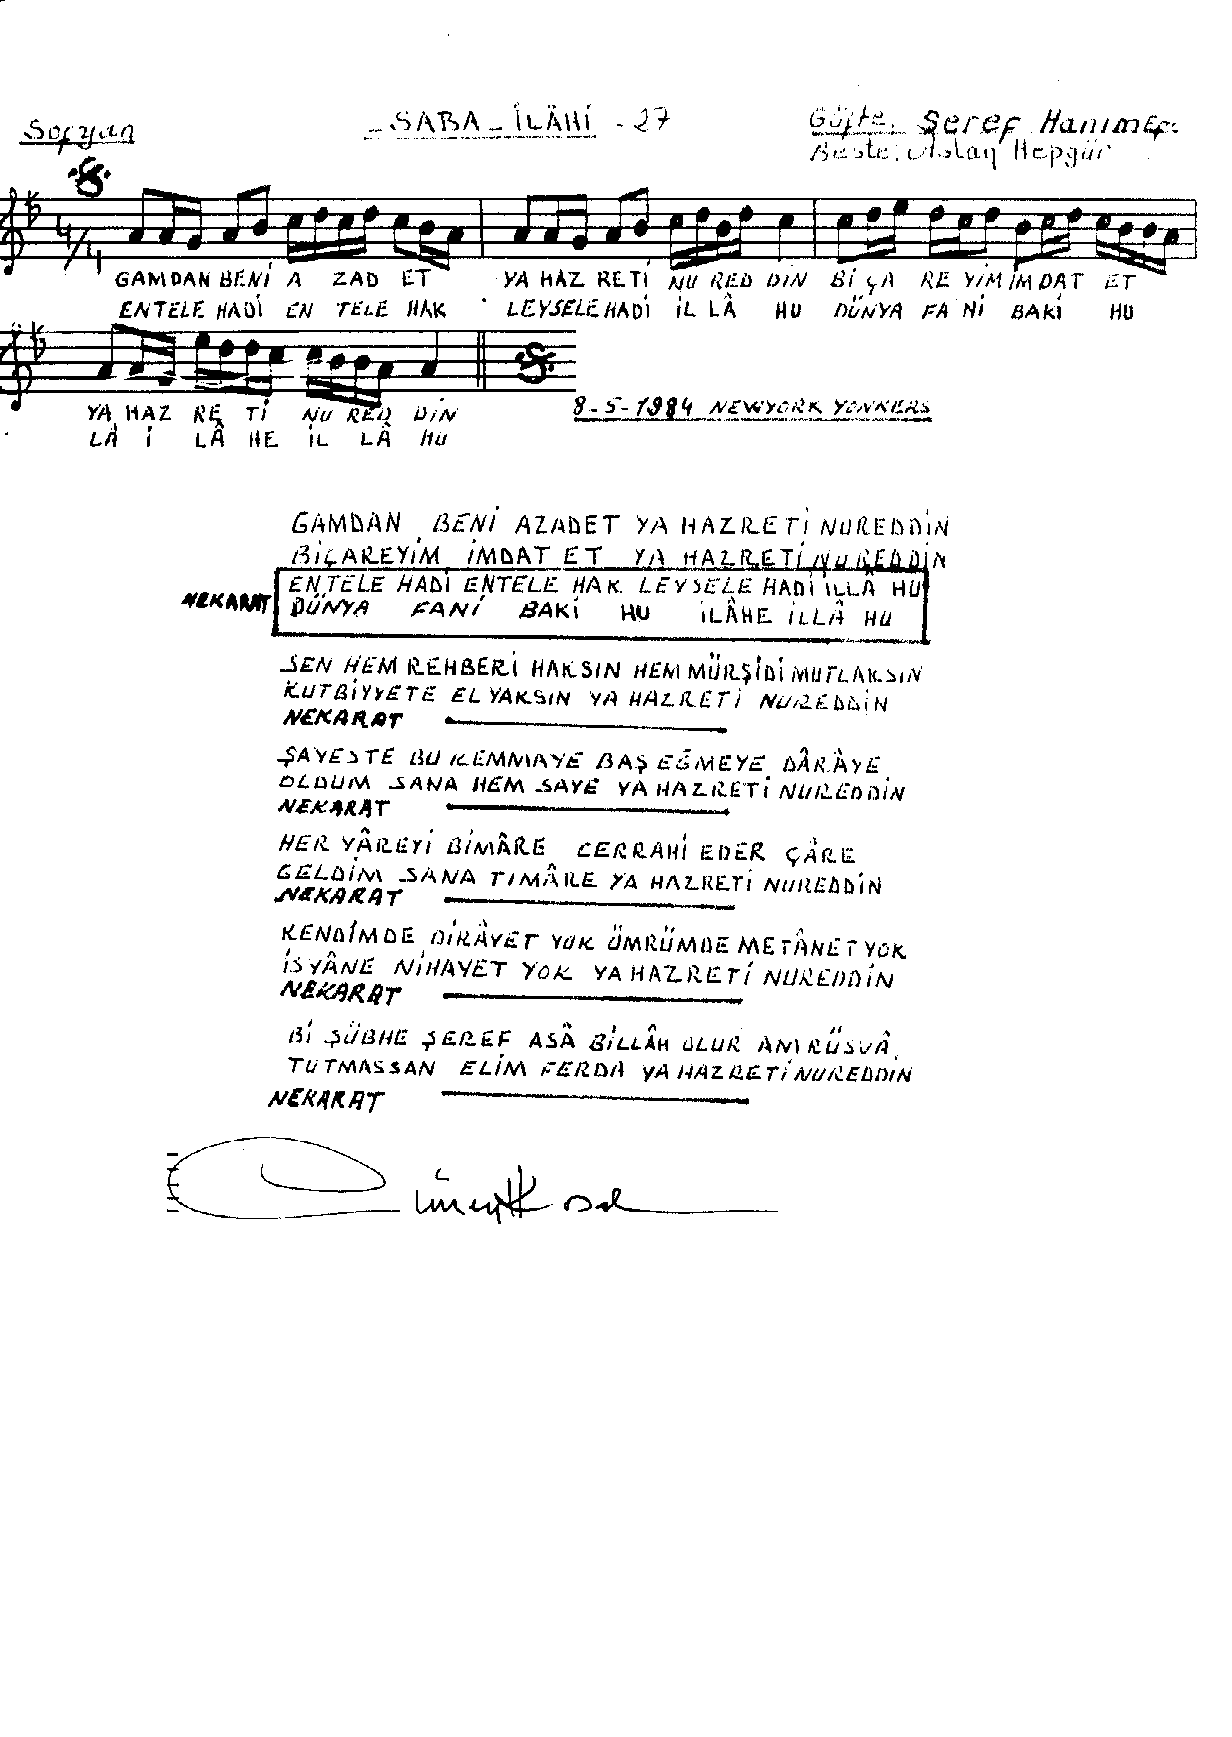 Sofyan
- SABA - İLÂHİ - 27
Güfte. Şeref Hanımef.
Beste. Aslan Hepgür
4/4
GAMDAN BENİ A ZAD ET YA HAZ RETİ NU RED DİN Bİ ÇA RE YİM İMDAT ET
ENTELE HADİ EN TELE HAK LEYSELE HADİ İL LÂ HU DÜNYA FA Nİ BAKİ HU
YA HAZ RE Tİ NU RED DİN
LÂ İ LÂ HE İL LÂ HU
8-5-1984 NEWYORK YONKERS
GAMDAN BENİ AZADET YA HAZRETİ NUREDDİN
BİÇAREYİM İMDAT ET YA HAZRETİ NUREDDİN
NEKARAT
ENTELE HADİ ENTELE HAK LEYSELE HADİ İLLÂ HU
DÜNYA FANİ BAKİ HU İLÂHE İLLÂ HU
SEN HEM REHBERİ HAKSIN HEM MÜRŞİDİ MUTLAKSIN
KUTBİYYETE EL YAKSIN YA HAZRETİ NUREDDİN
NEKARAT
ŞAYESTE BU KEMMAYE BAŞ EĞMEYE DÂRÂYE
OLDUM SANA HEM SAYE YA HAZRETİ NUREDDİN
NEKARAT
HER YÂREYİ BİMÂRE CERRAHİ EDER ÇÂRE
GELDİM SANA TIMÂRE YA HAZRETİ NUREDDİN
NEKARAT
KENDİMDE DİRÂYET YOK ÖMRÜMDE METÂNET YOK
İSYÂNE NİHAYET YOK YA HAZRETİ NUREDDİN
NEKARAT
Bİ ŞÜBHE ŞEREF ASÂ BİLLÂH OLUR ANI RÜSVÂ
TUTMASSAN ELİM FERDA YA HAZRETİ NUREDDİN
NEKARAT
Cüneyt Kosal